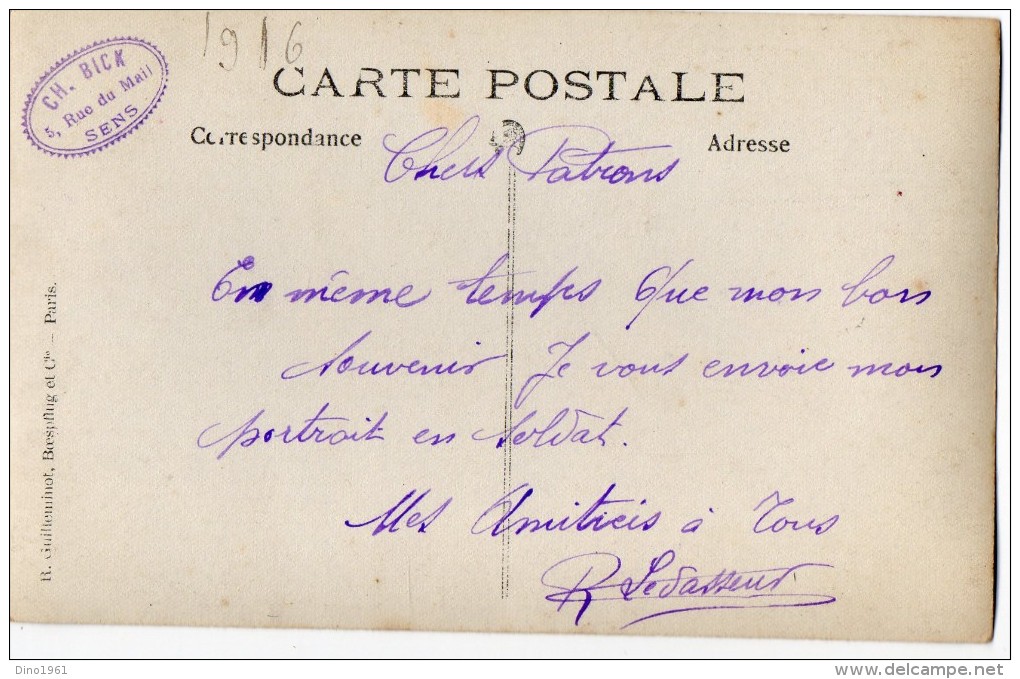 1916
CH. BICK
5, Rue du Mail
SENS
CARTE POSTALE
Correspondance
Adresse
Chers Patrons
En même temps Que mon bon
souvenir Je vous envoie mon
portrait en soldat.
Mes Amitieis à Tous
R Levasseur
R. Guilleminot, Bœspflug et Cie — Paris.
Dino1961
delcampe.net